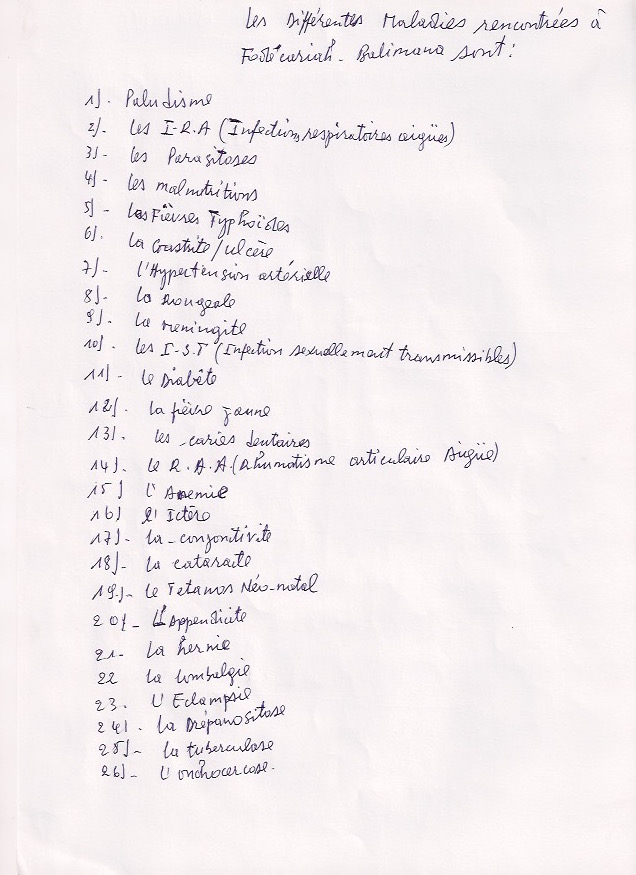 Les Différentes Maladies rencontrées à
Fodécariah - Balimana sont :
1). Paludisme
2). les I-R.A (Infections respiratoires aigües)
3). les Parasitoses
4). les malnutritions
5). Les Fièvres Typhoïdes
6). la Gastrite/ulcère
7). l'Hypertension artérielle
8). la Rougeole
9). la meningite
10). les I-S.T (Infection sexuellement transmissibles)
11). le Diabète
12). la fièvre jaune
13). les caries dentaires
14). le R.A.A. (Rhumatisme articulaire Aigüe)
15) l'Anemie
16) l'Ictère
17). la conjontivite
18). la cataracte
19). le Tetanos Néo-natal
20). L'Appendicite
21. la hernie
22 la lombalgie
23. L'Eclampsie
24). la Drépanositose
25). la tuberculose
26). L'onchocercose.